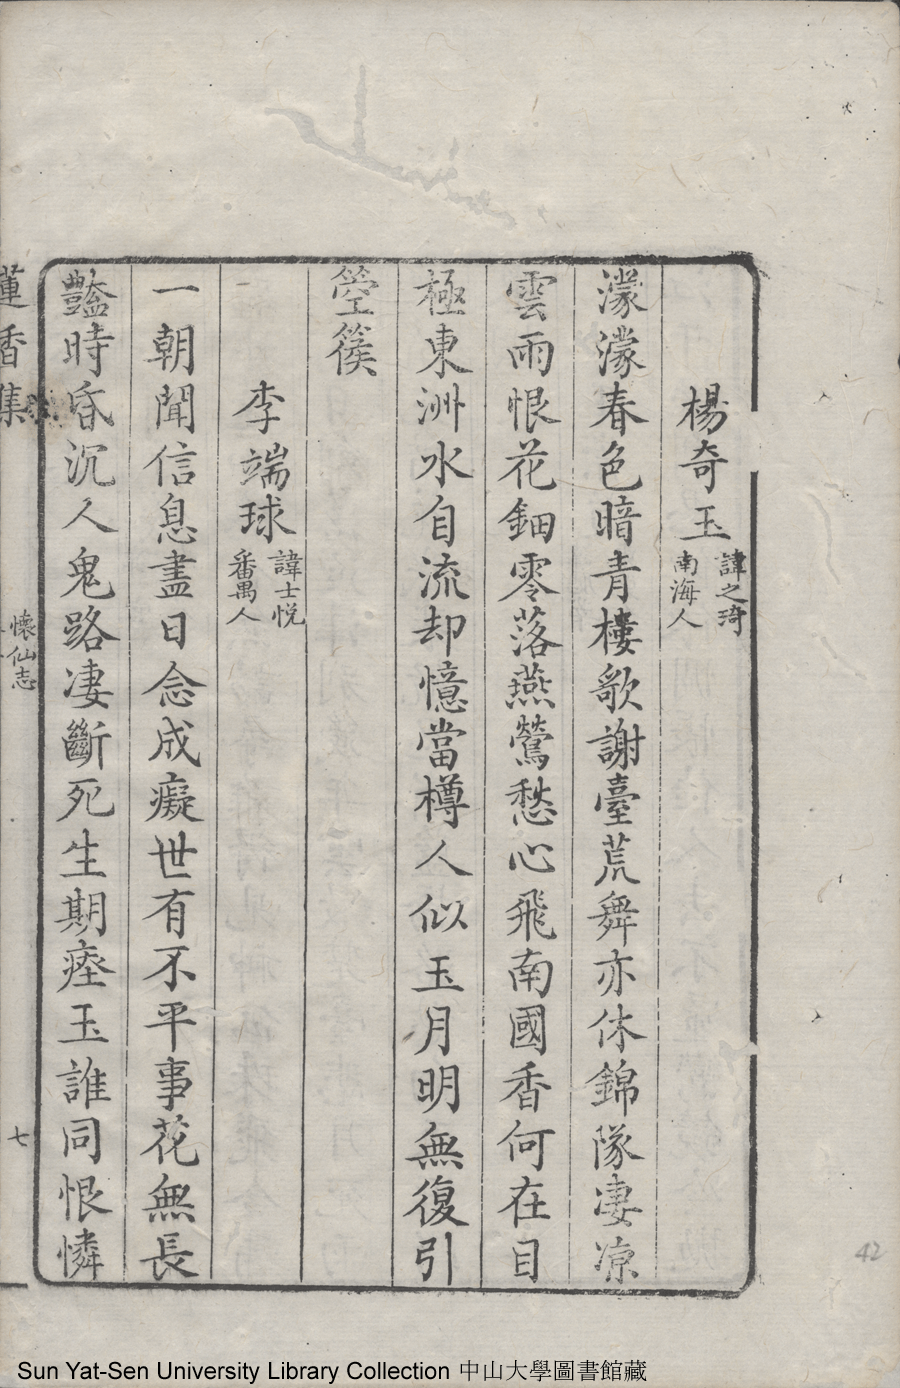 楊奇玉 諱之琦 南海人
濛濛春色暗青樓歌謝臺荒舞亦休錦隊凄凉
雲雨恨花鈿零落燕鶯愁心飛南國香何在目
極東洲水自流却憶當樽人似玉月明無復引
箜篌
李端球 諱士悅 番禺人
一朝聞信息盡日念成癡世有不平事花無長
豔時昏沉人鬼路凄斷死生期瘞玉誰同恨憐
蓮香集
懷仙志
七
42
Sun Yat-Sen University Library Collection 中山大學圖書館藏